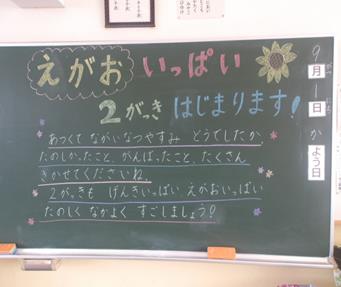 えがお いっぱい
2がっき はじまります!
あつくて ながいなつやすみ どうでしたか。
たのしかったこと、がんばったこと、たくさん
きかせてくださいね。
2がっきも げんきいっぱい えがおいっぱい
たのしく なかよく すごしましょう!
9月1日 かよう日